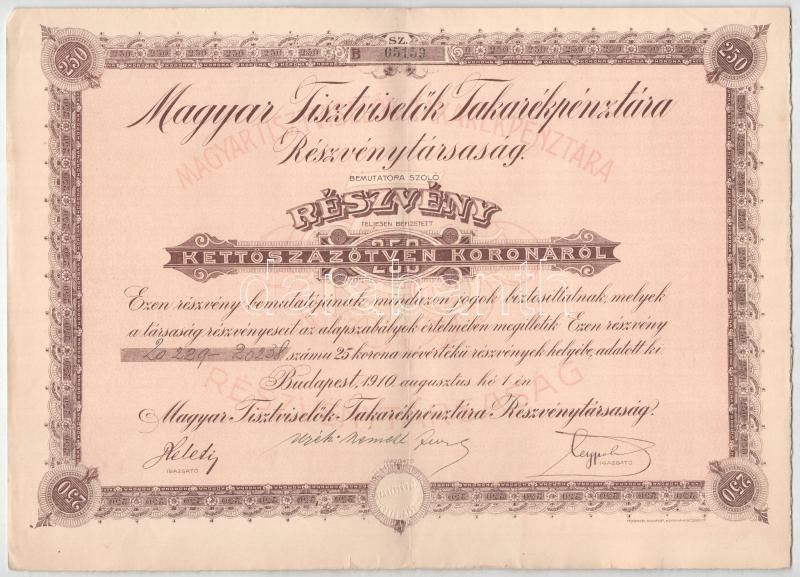 250
SZ.
B 05159
250
Magyar Tisztviselők Takarékpénztára
Részvénytársaság.
MAGYAR TISZTVISELŐK TAKARÉKPÉNZTÁRA
BEMUTATÓRA SZÓLÓ
RÉSZVÉNY
TELJESEN BEFIZETETT
250
KETTŐSZÁZÖTVEN KORONÁRÓL
darabanth
Ezen részvény bemutatójának mindazon jogok biztosíttatnak, melyek
a társaság részvényeseit az alapszabályok értelmében megilletik. Ezen részvény
20229 - 20238 számu 25 korona névértékű részvények helyébe, adatott ki.
RÉSZVÉNYTÁRSASÁG
Budapest, 1910. augusztus hó 1 én
Magyar Tisztviselők Takarékpénztára Részvénytársaság.
IGAZGATÓ
IGAZGATÓ
IGAZGATÓ
250
250